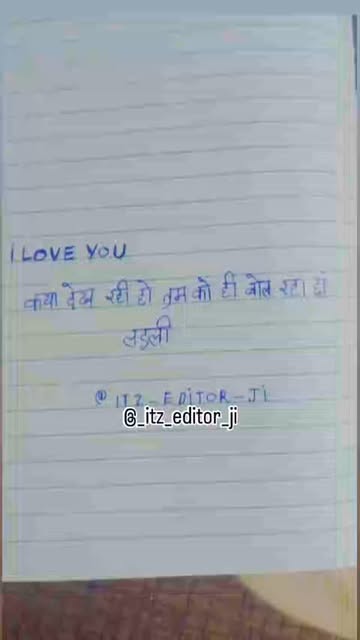 I LOVE YOU
कया देख रही हो तुम को ही बोल रहा हां
लडली
@ ITZ - EDITOR - JI
@_itz_editor_ji